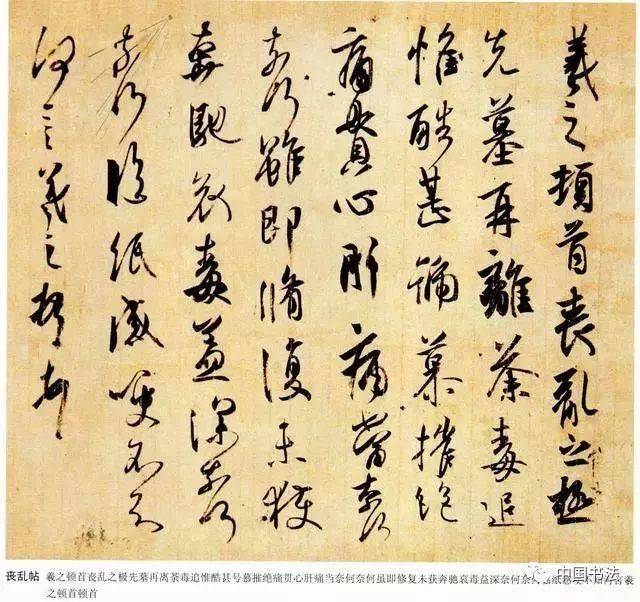 羲之頓首喪亂之極
先墓再離荼毒追
惟酷甚號慕摧絕
痛貫心肝痛當奈何
奈何雖即脩復未獲
奔馳哀毒益深奈何
奈何臨紙感哽不知
何言羲之頓首頓首
丧乱帖 羲之顿首丧乱之极先墓再离荼毒追惟酷甚号慕摧绝痛贯心肝痛当奈何奈何虽即修复未获奔驰哀毒益深奈何奈何临纸感哽不知何言羲
之顿首顿首
中国书法